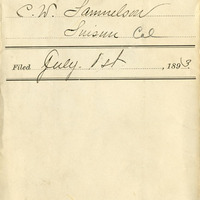 C. W. Samuelson
Suisun Cal
Filed July. 1st, 1893.